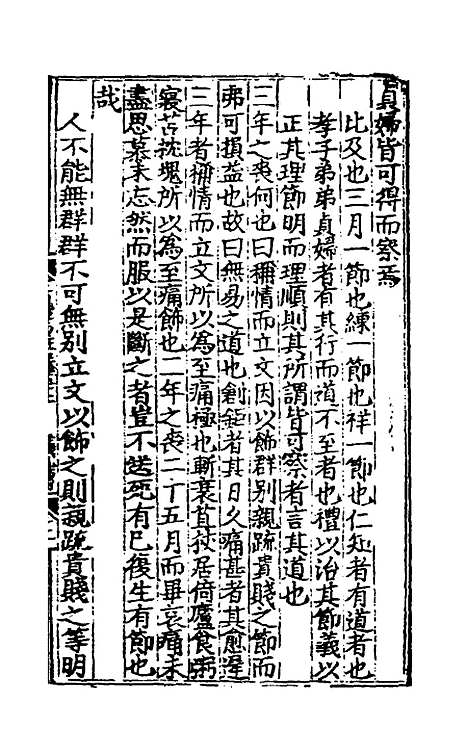 貞婦皆可得而察焉
比及也三月一節也練一節也祥一節也仁知者有道者也
孝子弟弟貞婦者有其行而道不至者也禮以治其節義以
正其理節明而理順則其所謂皆可察者言其道也
三年之喪何也曰稱情而立文因以飾群別親疏貴賤之節而
弗可損益也故曰無易之道也創鉅者其日久痛甚者其愈遲
三年者稱情而立文所以為至痛極也斬衰苴杖居倚廬食粥
寢苫枕塊所以為至痛飾也二年之喪二十五月而畢哀痛未
盡思慕未忘然而服以是斷之者豈不送死有已復生有節也
哉
人不能無群群不可無別立文以飾之則親疏貴賤之等明